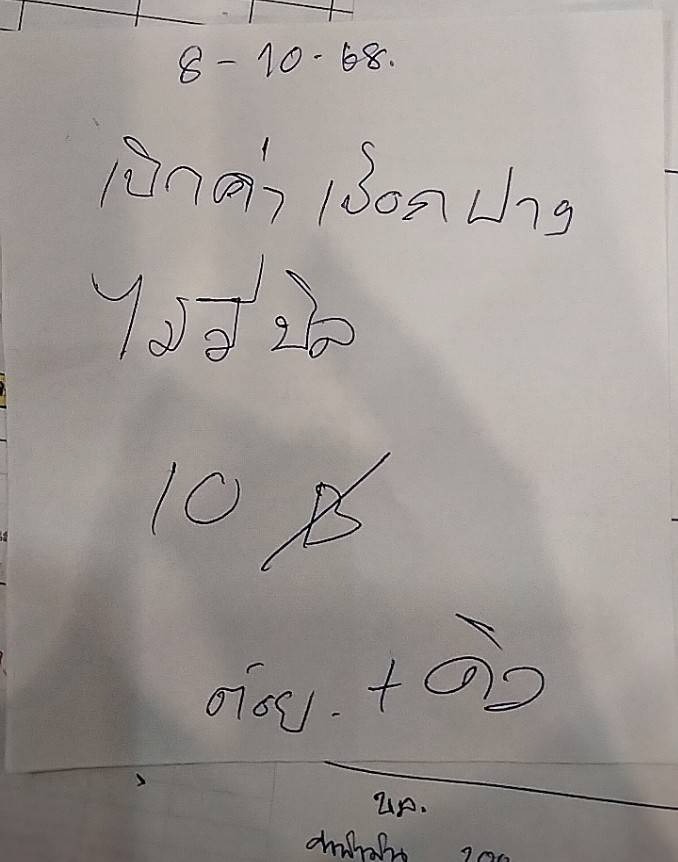 8-10-68.
เบิกค่า เชือกฟาง
ไม่มีบิล
10 ฿
ต้อย. + คิว
บด.
200